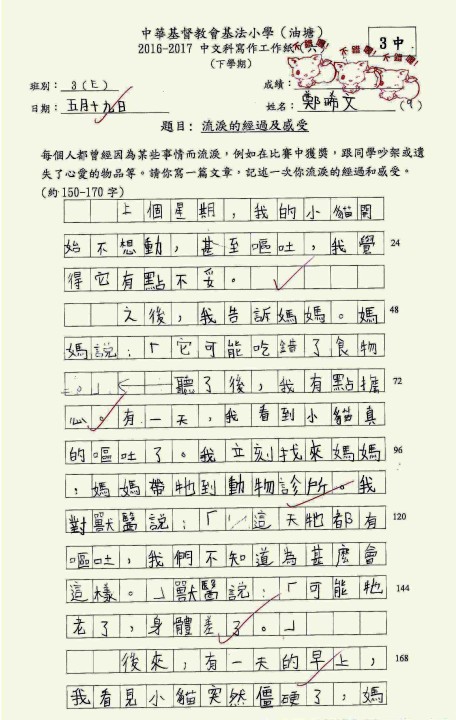 中華基督教會基法小學（油塘）
2016-2017 中文科寫作工作紙（六）
（下學期）
3中
不錯喔! 不錯喔! 不錯喔!
班別： 3(上)
成績：
日期： 五月十九日
姓名： 鄭晞文 (9)
題目： 流淚的經過及感受
每個人都曾經因為某些事情而流淚，例如在比賽中獲獎，跟同學吵架或遺
失了心愛的物品等。請你寫一篇文章，記述一次你流淚的經過和感受。
（約 150-170 字）
上個星期，我的小貓開
始不想動，甚至嘔吐，我覺 24
得它有點不妥。
之後，我告訴媽媽。媽 48
媽說：「它可能吃錯了食物
。」聽了後，我有點擔 72
心。有一天，我看到小貓真
的嘔吐了。我立刻找來媽媽 96
，媽媽帶牠到動物診所。我
對獸醫說：「這天牠都有 120
嘔吐，我們不知道為甚麼會
這樣。」獸醫說：「可能牠 144
老了，身體差了。」
後來，有一天的早上， 168
我看見小貓突然僵硬了，媽